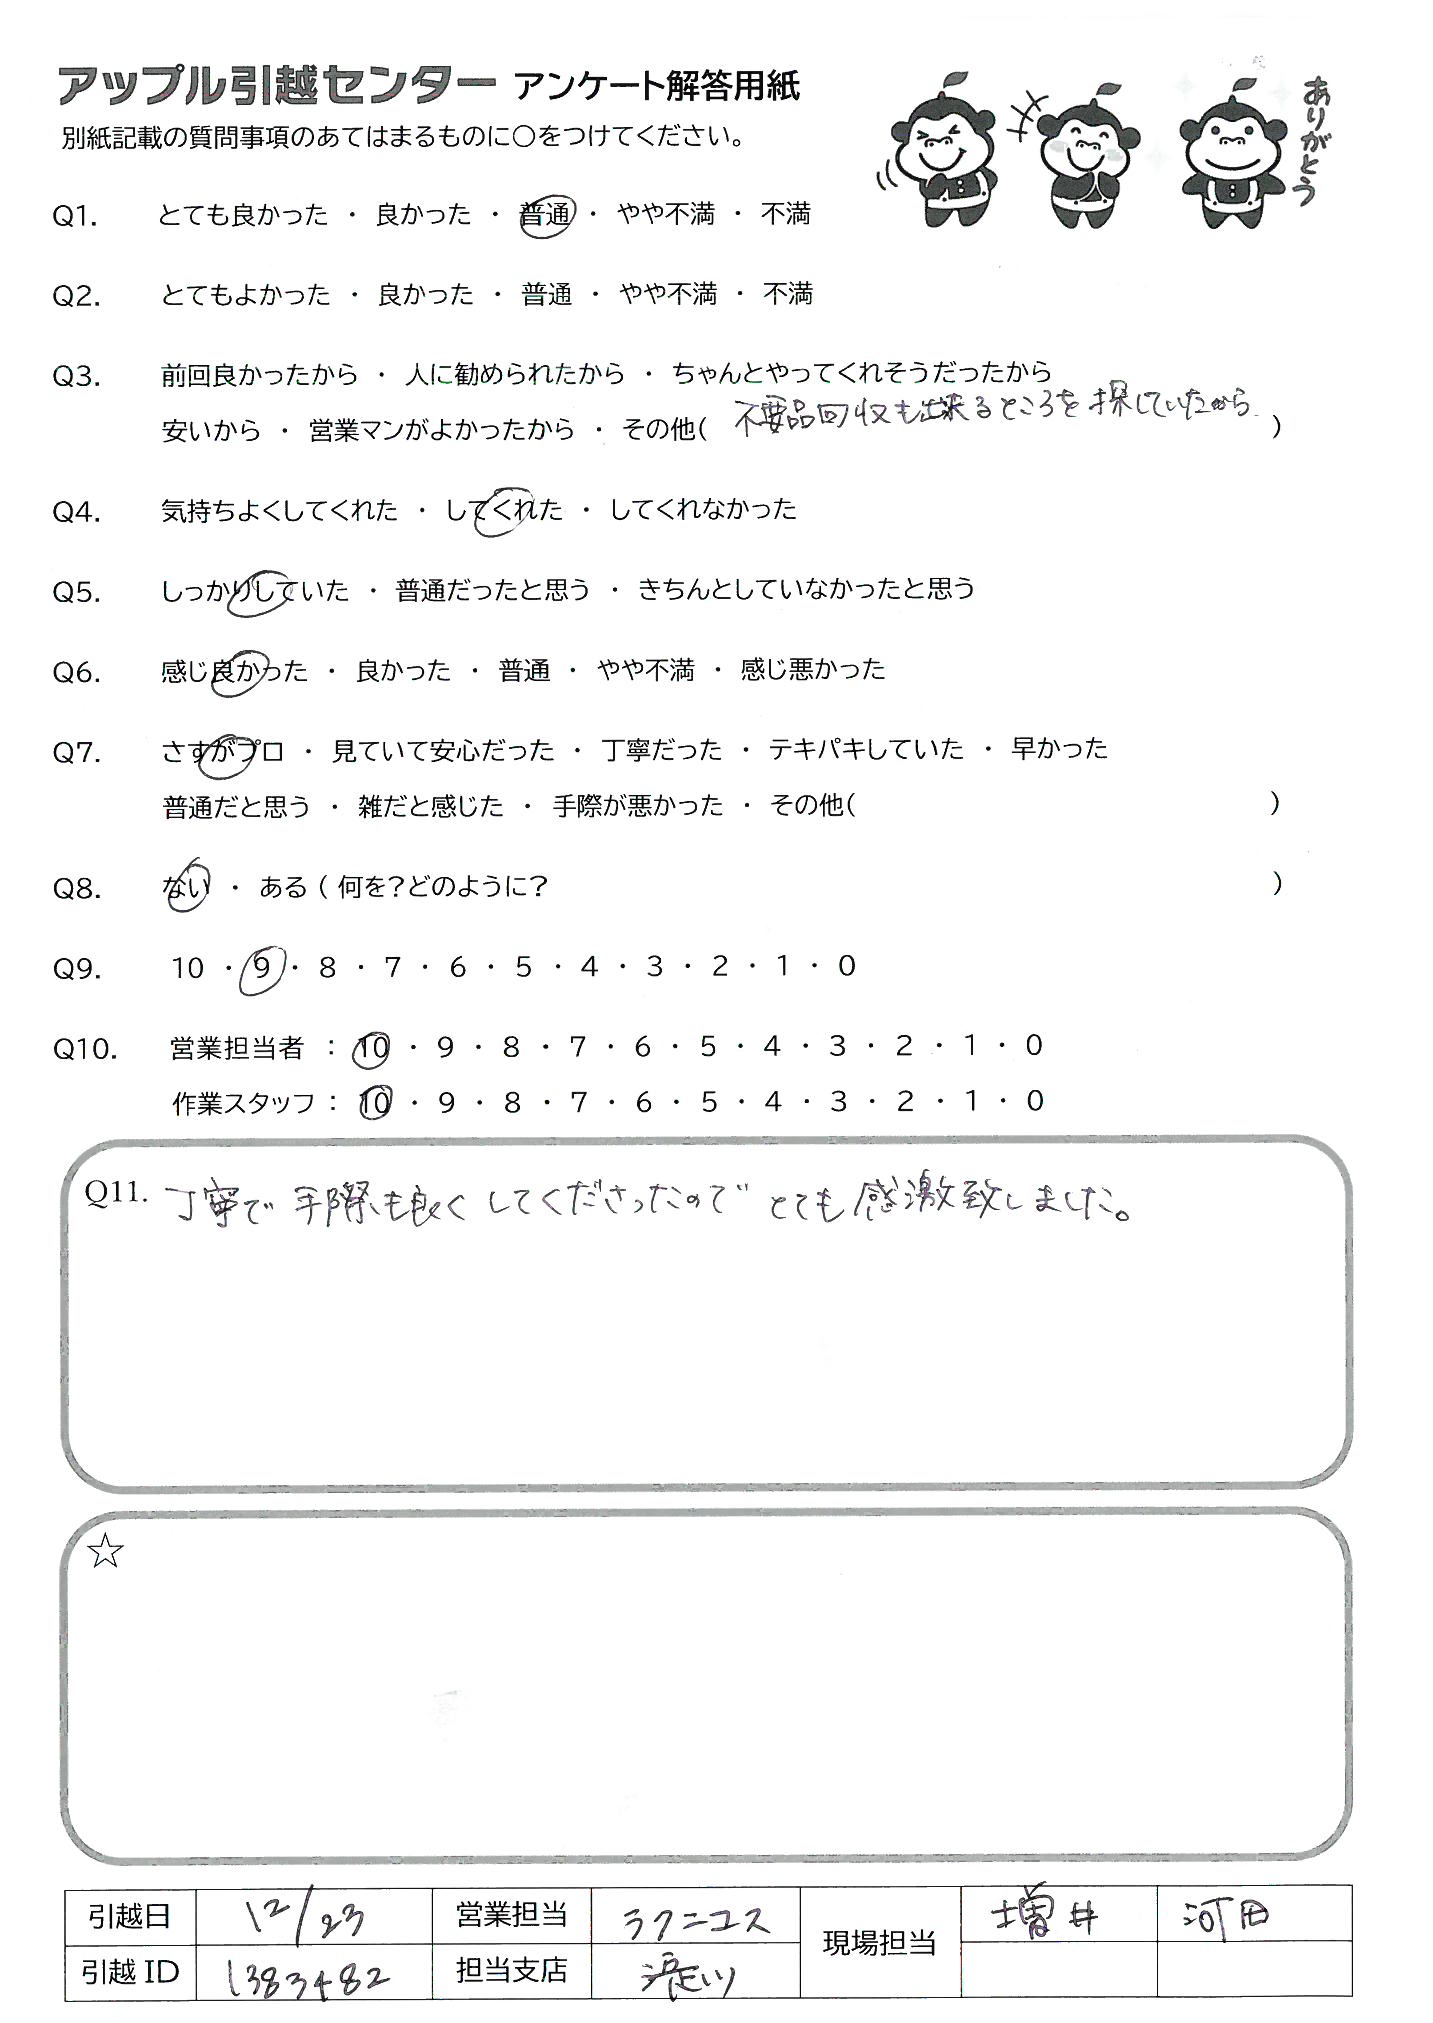 アップル引越センター アンケート解答用紙
別紙記載の質問事項のあてはまるものに○をつけてください。
ありがとう
Q1. とても良かった ・ 良かった ・ 普通 ・ やや不満 ・ 不満
Q2. とてもよかった ・ 良かった ・ 普通 ・ やや不満 ・ 不満
Q3. 前回良かったから ・ 人に勧められたから ・ ちゃんとやってくれそうだったから
安いから ・ 営業マンがよかったから ・ その他( 不要品回収も出来るところを探していたから )
Q4. 気持ちよくしてくれた ・ してくれた ・ してくれなかった
Q5. しっかりしていた ・ 普通だったと思う ・ きちんとしていなかったと思う
Q6. 感じ良かった ・ 良かった ・ 普通 ・ やや不満 ・ 感じ悪かった
Q7. さすがプロ ・ 見ていて安心だった ・ 丁寧だった ・ テキパキしていた ・ 早かった
普通だと思う ・ 雑だと感じた ・ 手際が悪かった ・ その他( )
Q8. ない ・ ある ( 何を?どのように? )
Q9. 10 ・ 9 ・ 8 ・ 7 ・ 6 ・ 5 ・ 4 ・ 3 ・ 2 ・ 1 ・ 0
Q10. 営業担当者 : 10 ・ 9 ・ 8 ・ 7 ・ 6 ・ 5 ・ 4 ・ 3 ・ 2 ・ 1 ・ 0
作業スタッフ : 10 ・ 9 ・ 8 ・ 7 ・ 6 ・ 5 ・ 4 ・ 3 ・ 2 ・ 1 ・ 0
Q11. 丁寧で手際も良くしてくださったのでとても感激致しました。
☆
引越日 12/23 営業担当 ラクニコス 現場担当 増井 河田
引越ID 1383482 担当支店